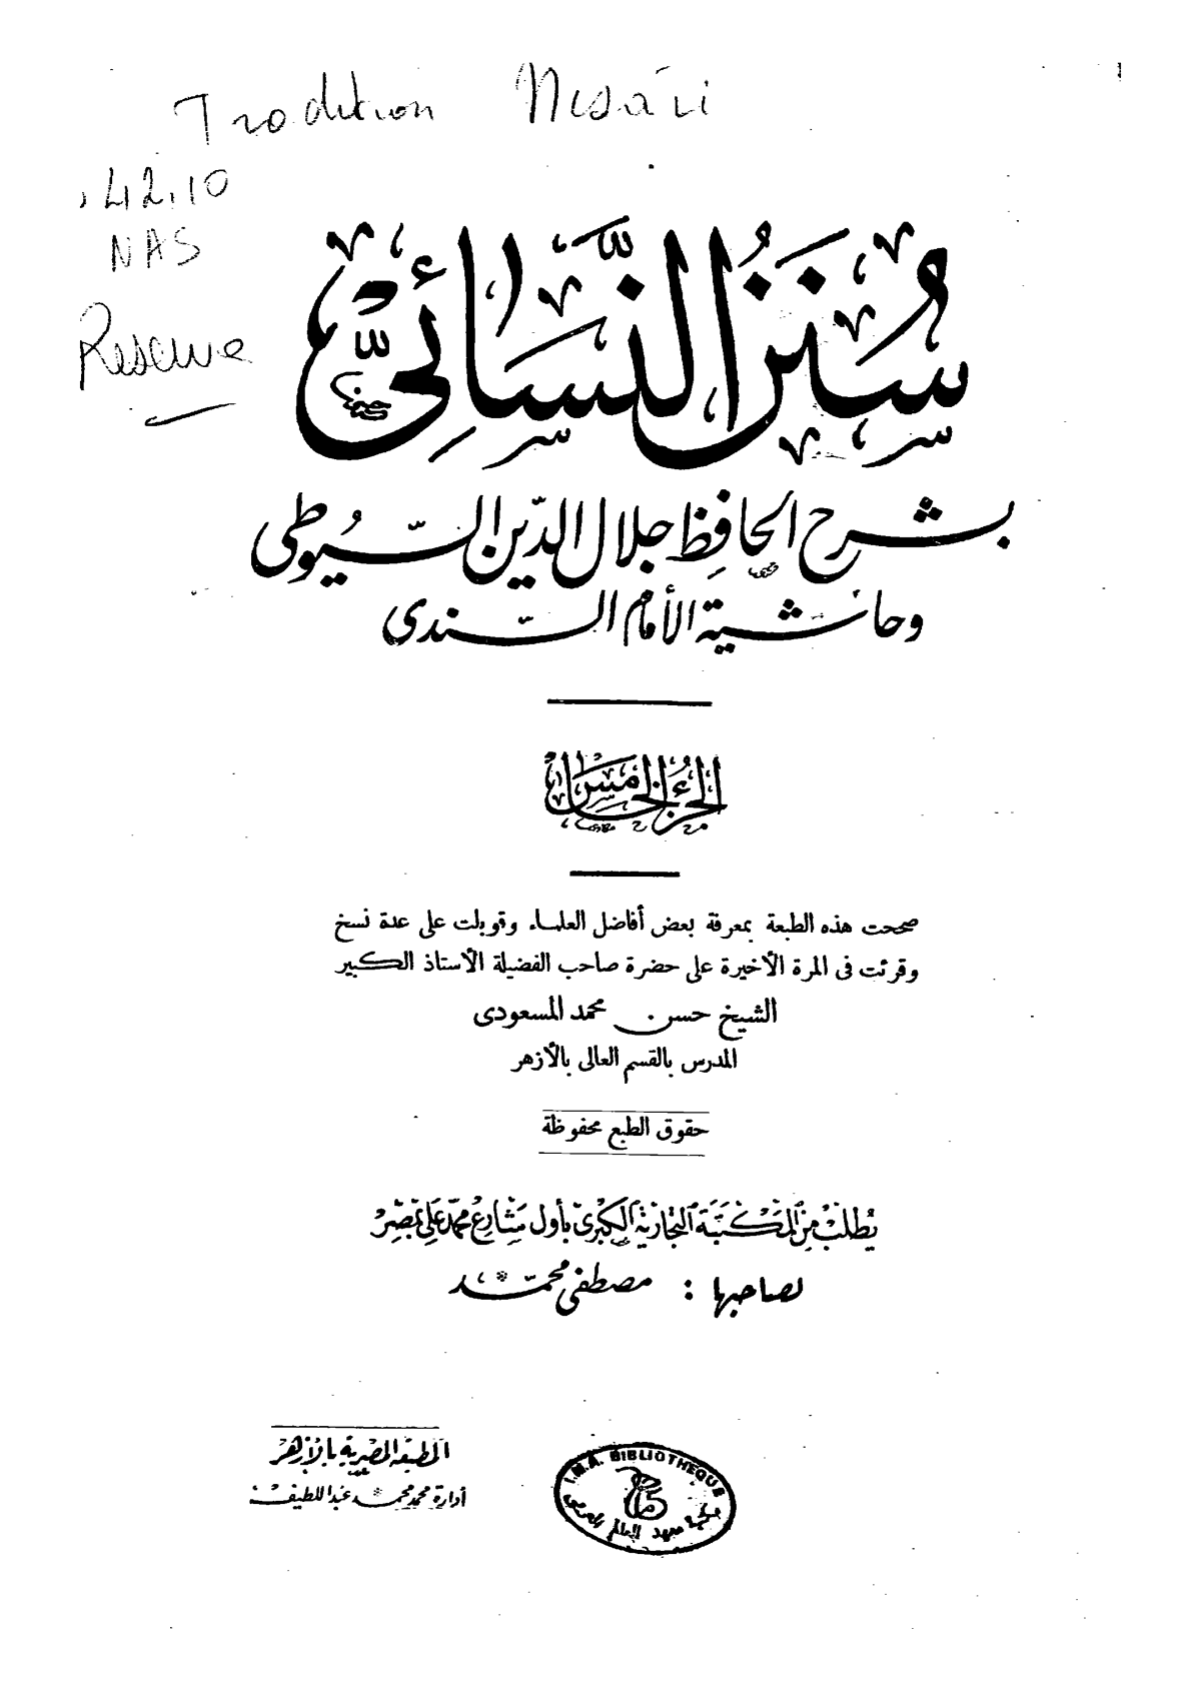 Tradition Nesā'i
, 42.10
NAS
Reserve
سُنَنُ النَّسَائِيّ
بشرح الحافِظ جلال الدّين السّيُوطى
وحاشية الأمام السّندى
الجزءُ الخامس
صححت هذه الطبعة بمعرفة بعض أفاضل العلماء وقوبلت على عدة نسخ
وقرئت فى المرة الأخيرة على حضرة صاحب الفضيلة الأستاذ الكبير
الشيخ حسن محمد المسعودى
المدرس بالقسم العالى بالأزهر
حقوق الطبع محفوظة
يُطلب من المكتبة التجارية الكبرى بأول شارع محمد على بمصر
لصاحبها : مصطفى محمّد
المطبعة المصرية بالأزهر
أدارة محمد محمد عبد اللطيف
I.M.A. BIBLIOTHEQUE
مكتبة معهد العالم العربي